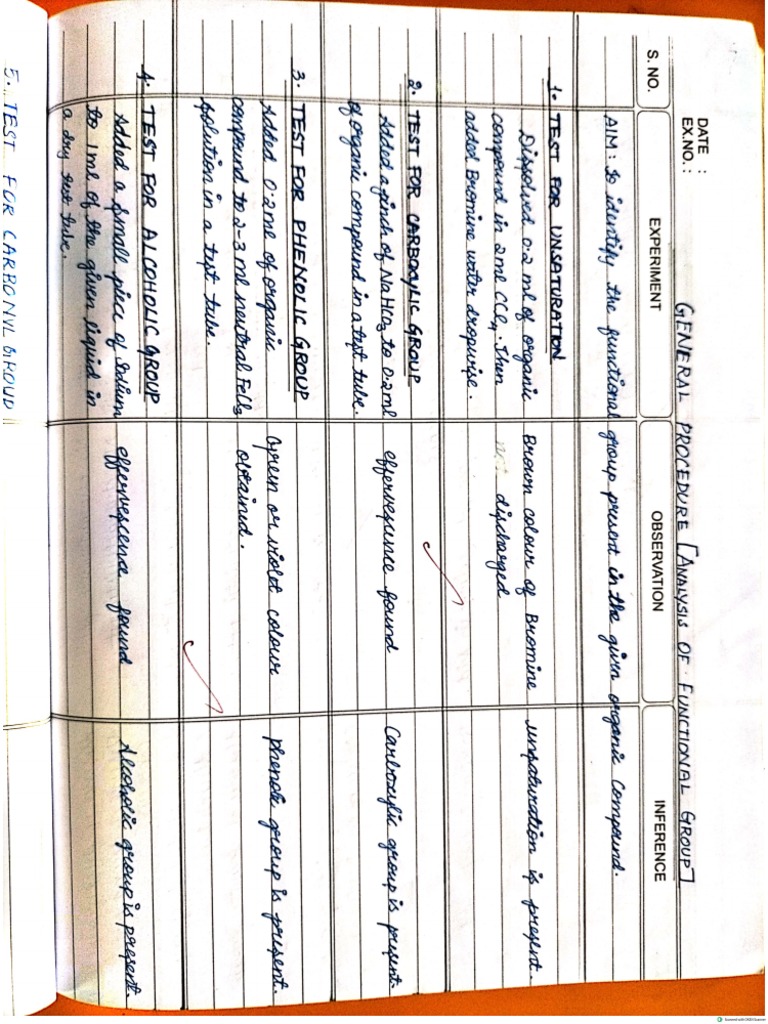 GENERAL PROCEDURE [ANALYSIS OF FUNCTIONAL GROUP]
DATE :
EX.NO. :
S. NO. EXPERIMENT OBSERVATION INFERENCE
AIM: To identify the functional group present in the given organic compound.
1. TEST FOR UNSATURATION
Dissolved 0.2 ml of organic Brown colour of Bromine unsaturation is present.
compound in 2ml CCl4. Then discharged
added Bromine water dropwise.
2. TEST FOR CARBOXYLIC GROUP
Added a pinch of NaHCO3 to 0.2ml effervescence found Carboxylic group is present.
of organic compound in a test tube.
3. TEST FOR PHENOLIC GROUP
Added 0.2ml of organic Green or violet colour phenolic group is present.
compound to 2-3 ml neutral FeCl3 obtained.
solution in a test tube.
4. TEST FOR ALCOHOLIC GROUP
Added a small piece of Sodium effervescence found Alcoholic group is present.
to 1ml of the given liquid in
a dry test tube.
5. TEST FOR CARBONYL GROUP
Scanned with OKEN Scanner